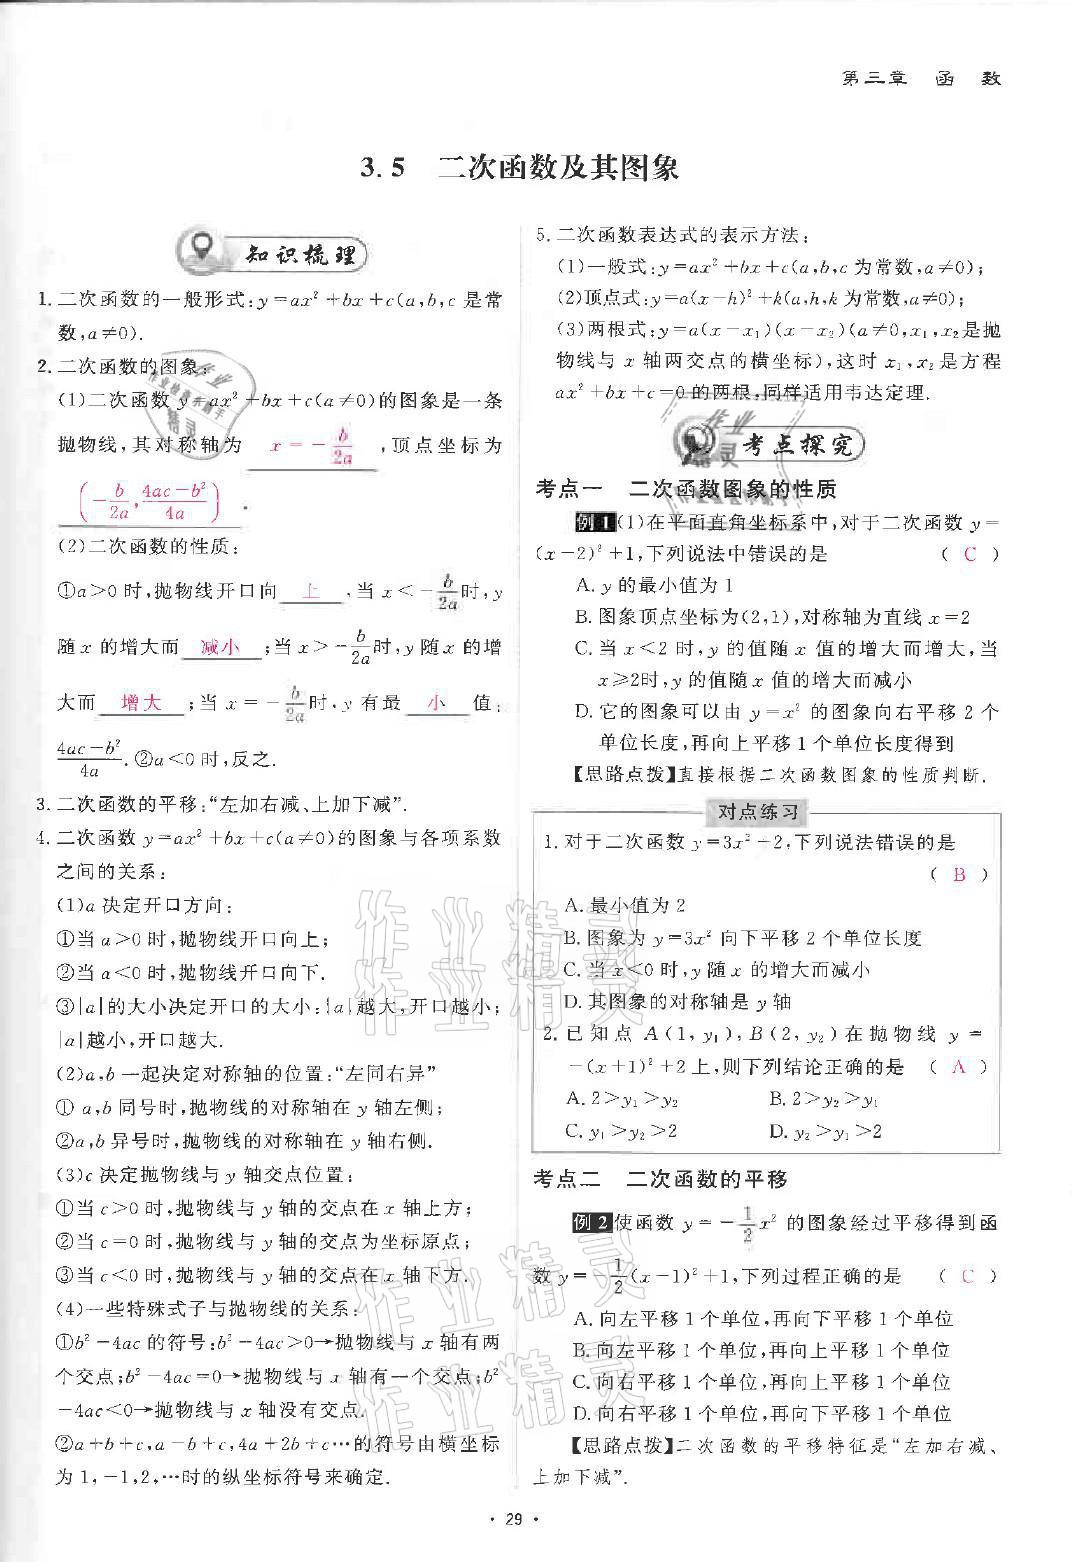 第三章 函 数
3.5 二次函数及其图象
知识梳理
1. 二次函数的一般形式:y=ax²+bx+c(a,b,c 是常
数,a≠0).
2. 二次函数的图象:
(1)二次函数 y=ax²+bx+c(a≠0)的图象是一条
抛物线,其对称轴为 x=-b/2a ,顶点坐标为
(-b/2a, (4ac-b²)/4a) .
(2)二次函数的性质:
①a>0 时,抛物线开口向 上 ,当 x<-b/2a 时,y
随 x 的增大而 减小 ;当 x>-b/2a 时,y 随 x 的增
大而 增大 ;当 x=-b/2a 时,y 有最 小 值:
(4ac-b²)/4a .②a<0 时,反之.
3. 二次函数的平移:“左加右减、上加下减”.
4. 二次函数 y=ax²+bx+c(a≠0)的图象与各项系数
之间的关系:
(1)a 决定开口方向:
①当 a>0 时,抛物线开口向上;
②当 a<0 时,抛物线开口向下.
③|a|的大小决定开口的大小:|a|越大,开口越小;
|a|越小,开口越大.
(2)a,b 一起决定对称轴的位置:“左同右异”
① a,b 同号时,抛物线的对称轴在 y 轴左侧;
②a,b 异号时,抛物线的对称轴在 y 轴右侧.
(3)c 决定抛物线与 y 轴交点位置:
①当 c>0 时,抛物线与 y 轴的交点在 x 轴上方;
②当 c=0 时,抛物线与 y 轴的交点为坐标原点;
③当 c<0 时,抛物线与 y 轴的交点在 x 轴下方.
(4)一些特殊式子与抛物线的关系:
①b²-4ac 的符号:b²-4ac>0→抛物线与 x 轴有两
个交点;b²-4ac=0→抛物线与 x 轴有一个交点;b²
-4ac<0→抛物线与 x 轴没有交点.
②a+b+c,a-b+c,4a+2b+c…的符号由横坐标
为 1,-1,2,…时的纵坐标符号来确定.
5. 二次函数表达式的表示方法:
(1)一般式:y=ax²+bx+c(a,b,c 为常数,a≠0);
(2)顶点式:y=a(x-h)²+k(a,h,k 为常数,a≠0);
(3)两根式:y=a(x-x₁)(x-x₂)(a≠0,x₁,x₂是抛
物线与 x 轴两交点的横坐标),这时 x₁,x₂是方程
ax²+bx+c=0 的两根,同样适用韦达定理.
考点探究
考点一 二次函数图象的性质
例1 (1)在平面直角坐标系中,对于二次函数 y=
(x-2)²+1,下列说法中错误的是 ( C )
A. y 的最小值为 1
B. 图象顶点坐标为(2,1),对称轴为直线 x=2
C. 当 x<2 时,y 的值随 x 值的增大而增大,当
x≥2时,y 的值随 x 值的增大而减小
D. 它的图象可以由 y=x² 的图象向右平移 2 个
单位长度,再向上平移 1 个单位长度得到
【思路点拨】直接根据二次函数图象的性质判断.
对点练习
1. 对于二次函数 y=3x²+2,下列说法错误的是
( B )
A. 最小值为 2
B. 图象为 y=3x² 向下平移 2 个单位长度
C. 当 x<0 时,y 随 x 的增大而减小
D. 其图象的对称轴是 y 轴
2. 已知点 A(1,y₁),B(2,y₂)在抛物线 y=
-(x+1)²+2 上,则下列结论正确的是 ( A )
A. 2>y₁>y₂ B. 2>y₂>y₁
C. y₁>y₂>2 D. y₂>y₁>2
考点二 二次函数的平移
例2 使函数 y=-1/2x² 的图象经过平移得到函
数 y=-1/2(x-1)²+1,下列过程正确的是 ( C )
A. 向左平移 1 个单位,再向下平移 1 个单位
B. 向左平移 1 个单位,再向上平移 1 个单位
C. 向右平移 1 个单位,再向上平移 1 个单位
D. 向右平移 1 个单位,再向下平移 1 个单位
【思路点拨】二次函数的平移特征是“左加右减、
上加下减”.
作业精灵
作业精灵
作业精灵
作业精灵
· 29 ·